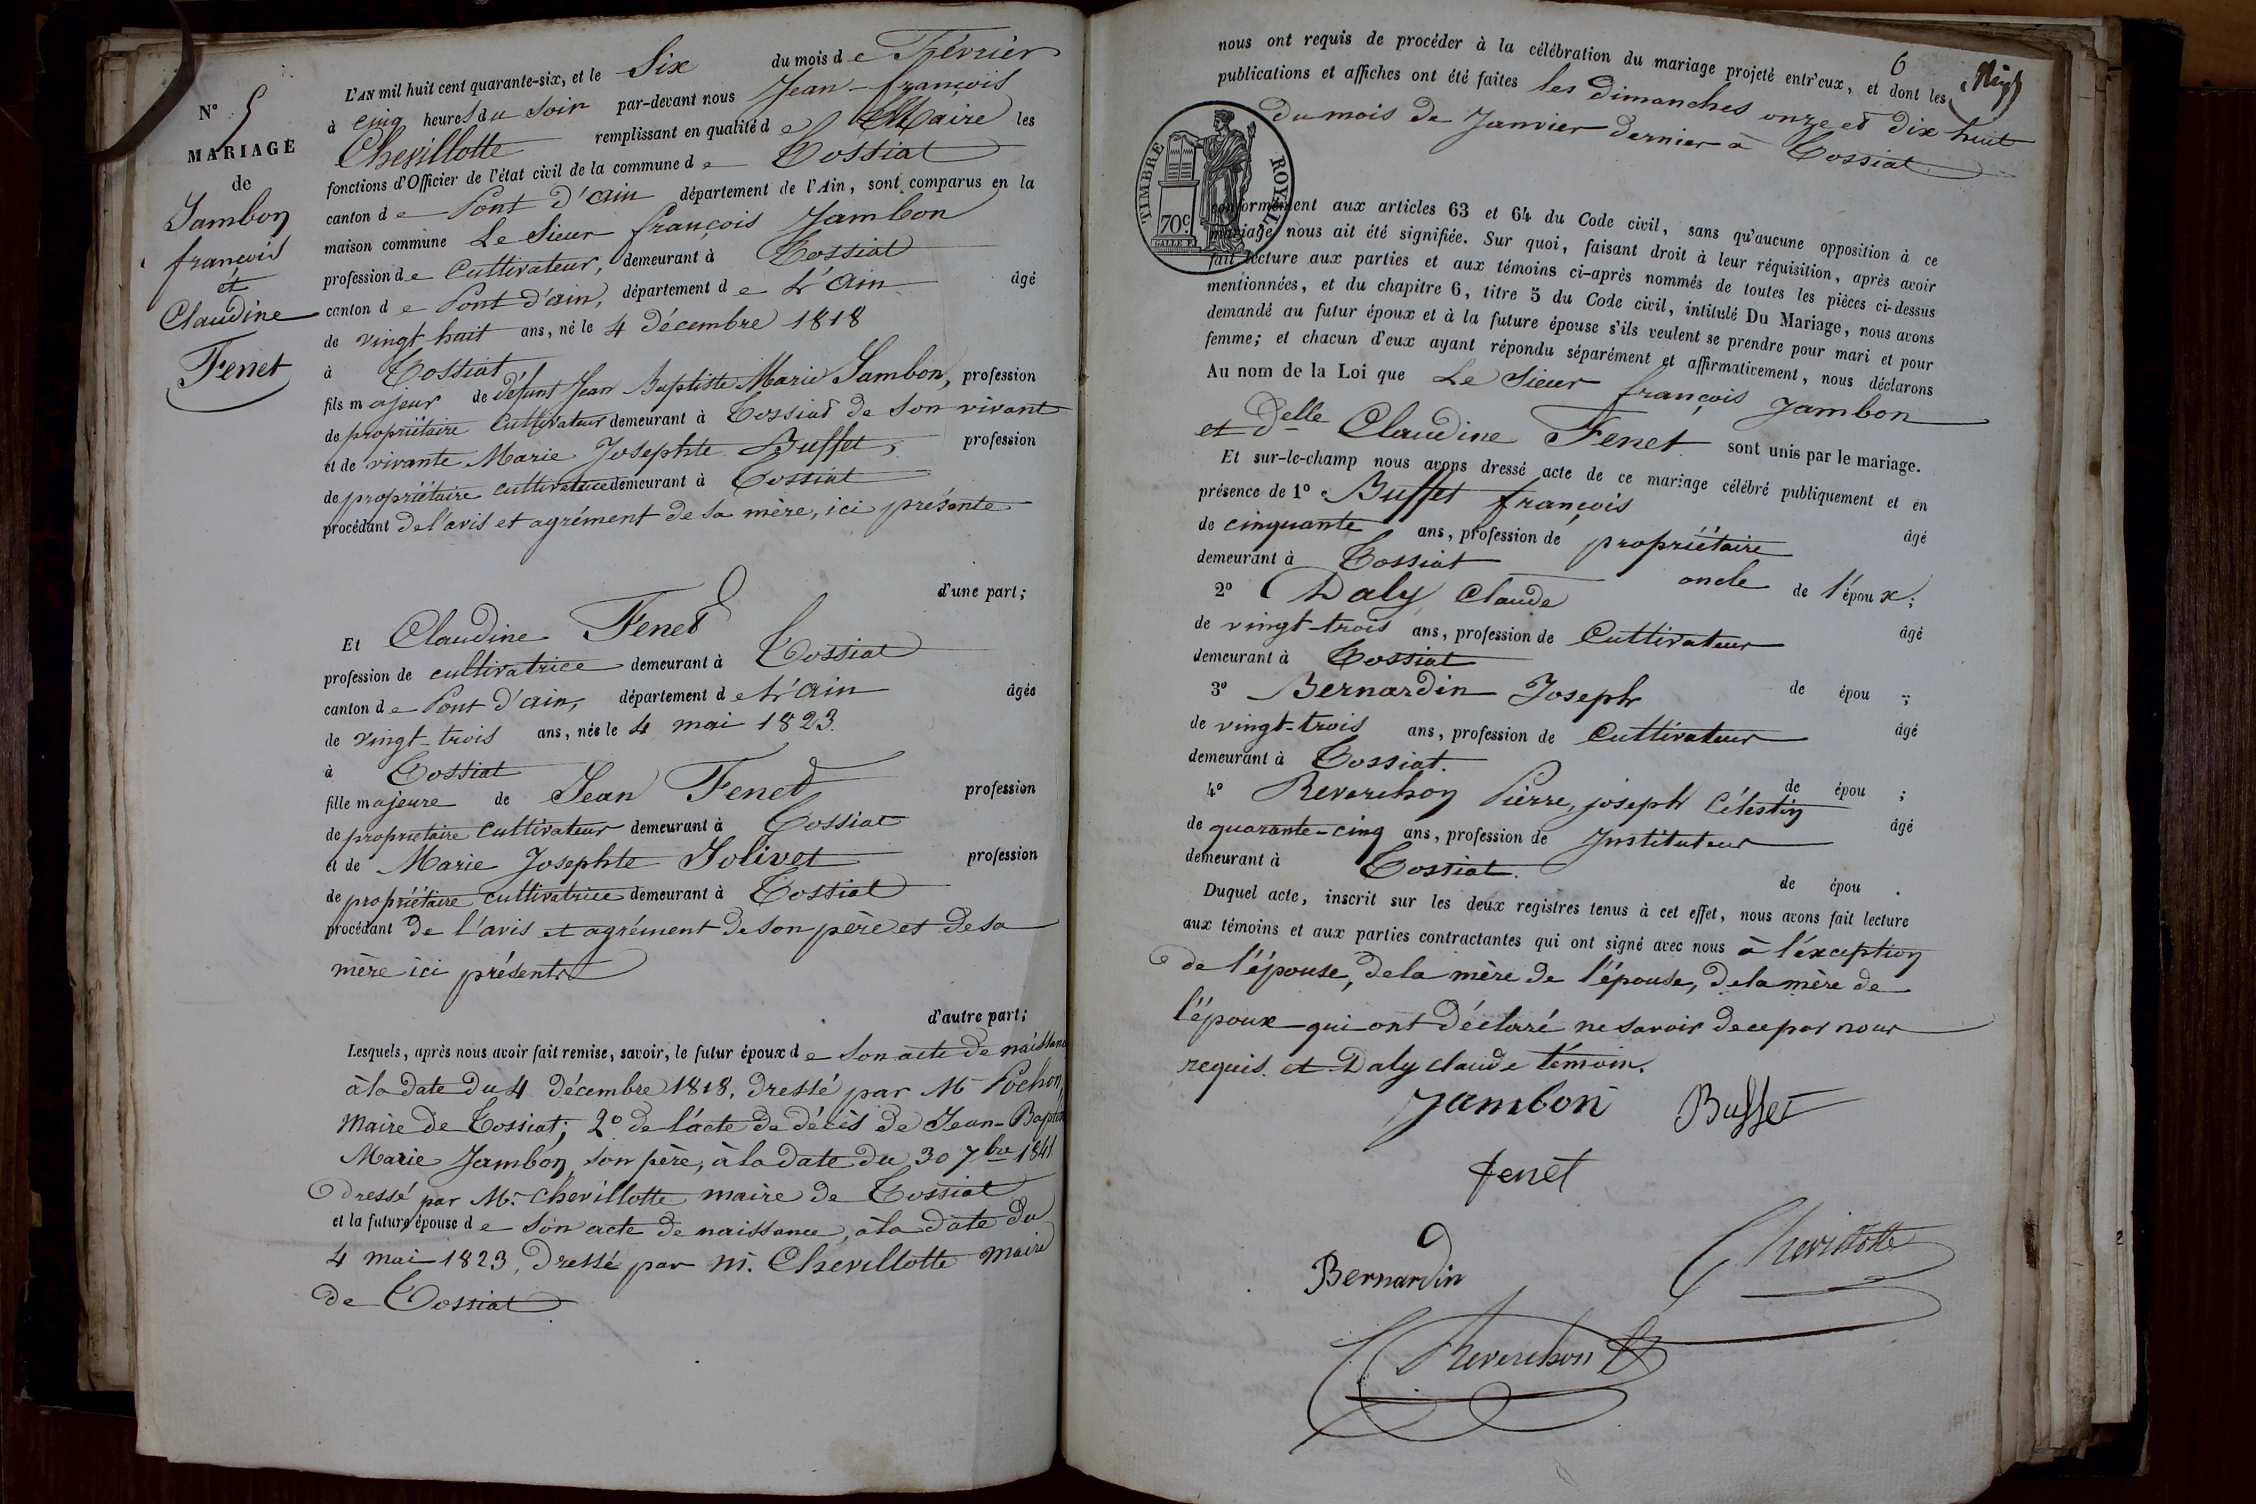 N° 5
MARIAGE
de
Jambon
françois
et
Claudine
Fenet
L'AN mil huit cent quarante-six, et le Six du mois de Février
à cinq heures du soir par-devant nous Jean-françois
Chevillotte remplissant en qualité de Maire les
fonctions d'Officier de l'état civil de la commune de Tossiat
canton de Pont d'ain département de l'Ain, sont comparus en la
maison commune Le Sieur françois Jambon
profession de Cultivateur, demeurant à Tossiat
canton de Pont d'ain, département de L'ain âgé
de vingt-huit ans, né le 4 décembre 1818
à Tossiat
fils majeur de défunt Jean Baptiste Marie Jambon, profession
de propriétaire Cultivateur demeurant à Tossiat de son vivant
et de vivante Marie Josephte Buffet, profession
de propriétaire cultivatrice demeurant à Tossiat
procédant de l'avis et agrément de sa mère, ici présente
d'une part;
Et Claudine Fenet
profession de cultivatrice demeurant à Tossiat
canton de Pont d'ain, département de L'ain âgée
de vingt-trois ans, née le 4 mai 1823.
à Tossiat
fille majeure de Jean Fenet profession
de propriétaire Cultivateur demeurant à Tossiat
et de Marie Josephte Jolivet profession
de propriétaire cultivatrice demeurant à Tossiat
procédant de l'avis et agrément de son père et de sa
mère ici présents
d'autre part;
Lesquels, après nous avoir fait remise, savoir, le futur époux de son acte de naissance
à la date du 4 décembre 1818, dressé par Mr Pochon,
Maire de Tossiat; 2° de l'acte de décès de Jean-Baptiste
Marie Jambon, son père, à la date du 30 7bre 1841
dressé par Mr Chevillotte maire de Tossiat
et la future épouse de son acte de naissance, à la date du
4 mai 1823, dressé par m. Chevillotte Maire
de Tossiat
6
nous ont requis de procéder à la célébration du mariage projeté entr'eux, et dont les
publications et affiches ont été faites les dimanches onze et dix huit
du mois de Janvier dernier à Tossiat
TIMBRE ROYAL
70c
conformément aux articles 63 et 64 du Code civil, sans qu'aucune opposition à ce
mariage nous ait été signifiée. Sur quoi, faisant droit à leur réquisition, après avoir
fait lecture aux parties et aux témoins ci-après nommés de toutes les pièces ci-dessus
mentionnées, et du chapitre 6, titre 5 du Code civil, intitulé Du Mariage, nous avons
demandé au futur époux et à la future épouse s'ils veulent se prendre pour mari et pour
femme; et chacun d'eux ayant répondu séparément et affirmativement, nous déclarons
Au nom de la Loi que Le Sieur françois Jambon
et Delle Claudine Fenet sont unis par le mariage.
Et sur-le-champ nous avons dressé acte de ce mariage célébré publiquement et en
présence de 1° Buffet françois âgé
de cinquante ans, profession de propriétaire
demeurant à Tossiat oncle de l'époux;
2° Daly Claude âgé
de vingt-trois ans, profession de Cultivateur
demeurant à Tossiat de épou ;
3° Bernardin Joseph âgé
de vingt-trois ans, profession de Cultivateur
demeurant à Tossiat. de épou ;
4° Reverchon Pierre, joseph Célestin âgé
de quarante-cinq ans, profession de Instituteur
demeurant à Tossiat. de épou .
Duquel acte, inscrit sur les deux registres tenus à cet effet, nous avons fait lecture
aux témoins et aux parties contractantes qui ont signé avec nous à l'éxception
de l'épouse, de la mère de l'épouse, de la mère de
l'époux qui ont déclaré ne savoir de ce par nous
requis. et Daly claude témoin.
Jambon Buffet
fenet
Bernardin Chevillotte
Reverchon